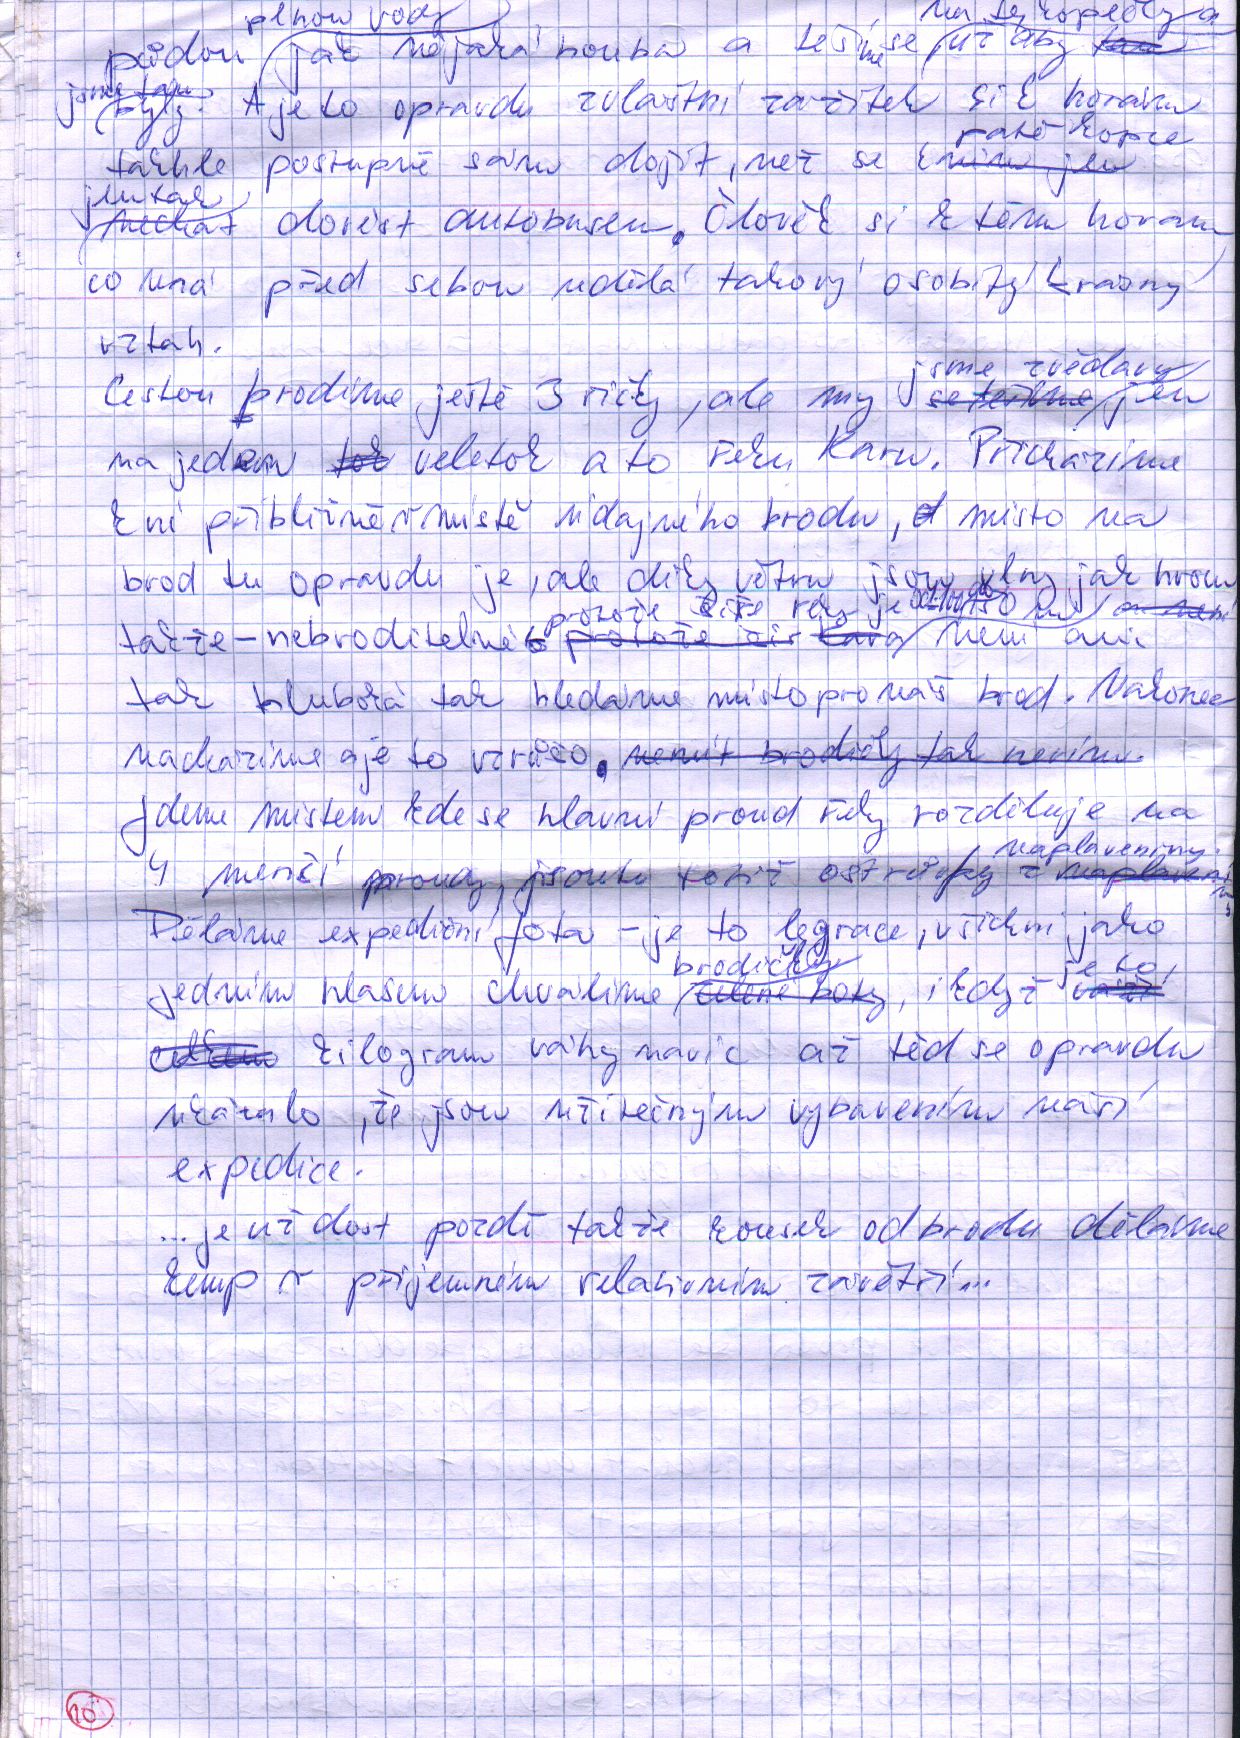 plnou vody
na ty kopečky a
půdou jak nějaká houba a těšíme se už aby
jsme tam
byly. A je to opravdu zvláštní zážitek si k horám
takhle postupně sám dojít, než se
jen tak
nechat dovést autobusem. Člověk si k těm horám
co má před sebou udělá takový osobitý krásný
vztah.
jsme zvědavy
Cestou brodíme ještě 3 říčky, ale my se těšíme jen
na jeden tok veletok a to řeku Karu. Přicházíme
k ní přibližně v místě údajného brodu, místo na
brod tu opravdu je, ale díky větru jsou vlny jak hrom
protože čiře řeky je
takže - nebroditelné protože není ani
tak hluboká tak hledáme místo pro náš brod. Nakonec
nacházíme a je to vzrůšo. nemít brodičky tak nevím.
Jdeme místem kde se hlavní proud řeky rozděluje na
naplaveniny.
4 menší proudy, jsou tu totiž ostrůvky z naplavenin
Děláme expediční fota - je to legrace, všichni jako
brodičky je to
jedním hlasem chválíme boty, i když
kilogram váhy navíc až teď se opravdu
ukázalo, že jsou užitečným vybavením naší
expedice.
... je už dost pozdě takže kousek od brodu děláme
kemp v příjemném relativním závětří...
10